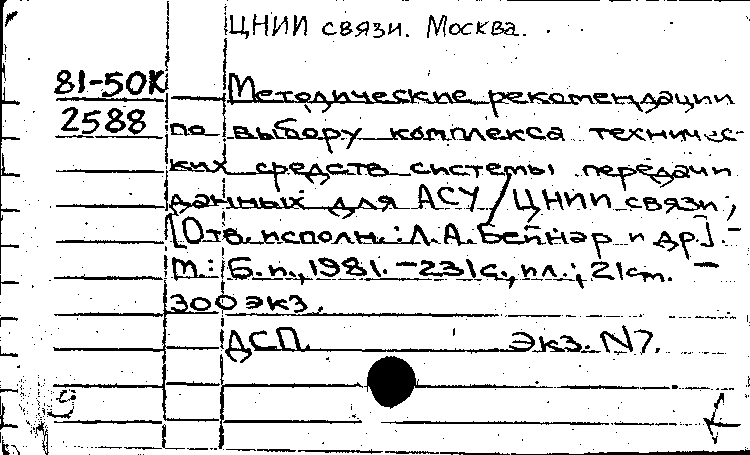 ЦНИИ связи. Москва.
81-50К Методические рекомендации
2588 по выбору комплекса техничес-
ких средств системы передачи
данных для АСУ / ЦНИИ связи;
[Отв. исполн.: Л.А. Бейнар и др]. -
М.: Б.и., 1981. - 231с., ил.; 21см. -
300 экз.
ДСП. Экз. N7.